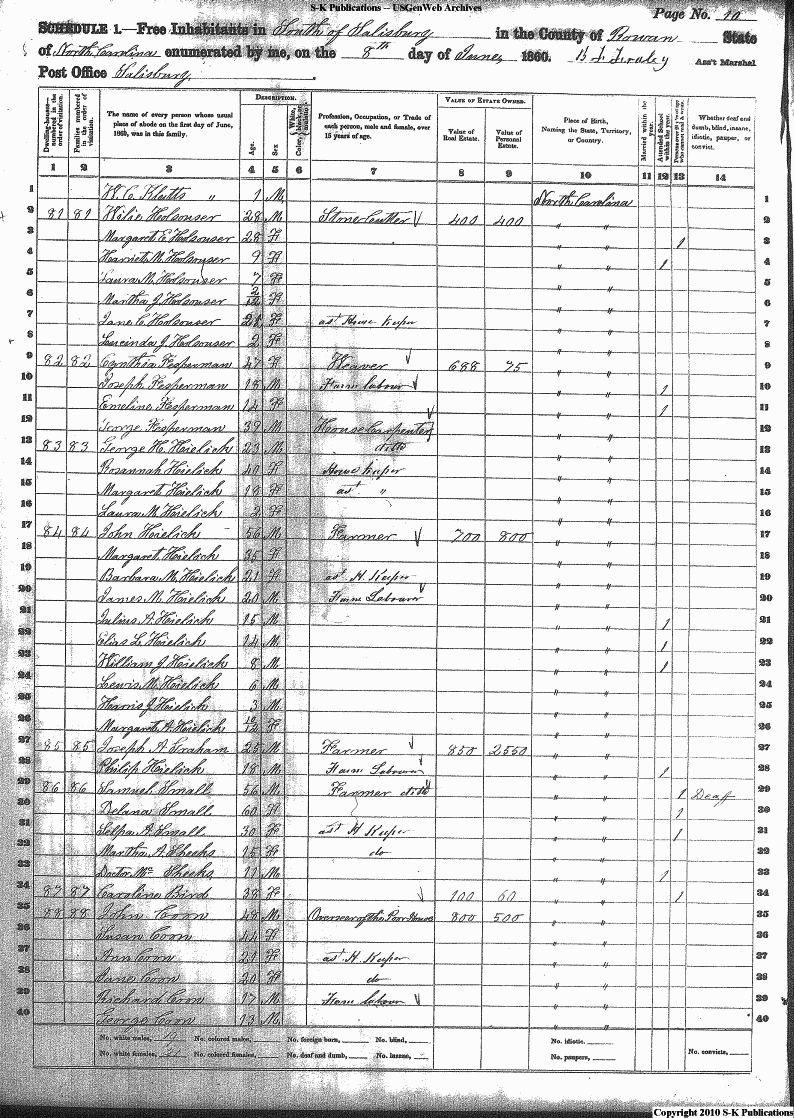 S-K Publications -- USGenWeb Archives
Page No. 10
SCHEDULE 1.—Free Inhabitants in South of Salisbury in the County of Rowan State
of North Carolina enumerated by me, on the 8th day of June, 1860. Ass't Marshal
Post Office Salisbury.
DESCRIPTION. VALUE OF ESTATE OWNED.
Dwelling-houses— numbered in the order of visitation. Families numbered in the order of visitation. The name of every person whose usual place of abode on the first day of June, 1860, was in this family. Age. Sex Profession, Occupation, or Trade of each person, male and female, over 15 years of age. Value of Real Estate. Value of Personal Estate. Place of Birth, Naming the State, Territory, or Country. Married within the year. Attended School within the year. Whether deaf and dumb, blind, insane, idiotic, pauper, or convict.
1 2 3 4 5 6 7 8 9 10 11 12 13 14
1 W. C. Klutts " 1 M North Carolina 1
2 81 81 Wilie Holsouser 28 M Stone Cutter 400 400 " " 2
3 Margaret E. Holsouser 28 F " " 1 3
4 Harriet M. Holsouser 9 F " " 1 4
5 Laura M. Holsouser 7 F " " 5
6 Martha J. Holsouser 2/12 F " " 6
7 Jane C. Holsouser 21 F ast House Keeper " " 7
8 Lucinda J. Holsouser 2 F " " 8
9 82 82 Cynthia Fesperman 47 F Weaver 688 75 " " 9
10 Joseph Fesperman 18 M Farm labour " " 1 10
11 Emeline Fesperman 14 F " " 1 11
12 George Fesperman 39 M House Carpenter " " 12
13 83 83 George H. Hielick 23 M ditto " " 13
14 Rosannah Hielick 40 F House Keeper " " 14
15 Margaret Hielick 18 F ast " " " 15
16 Laura M. Hielick 2 F " " 16
17 84 84 John Hielick 56 M Farmer 700 800 " " 17
18 Margaret Hielick 35 F " " 18
19 Barbara M. Hielick 21 F ast H. Keeper " " 19
20 James M. Hielick 20 M Farm Labourer " " 20
21 Julius A. Hielick 15 M " " 1 21
22 Elias L. Hielick 14 M " " 1 22
23 William J. Hielick 8 M " " 1 23
24 Lewis M. Hielick 6 M " " 24
25 Harris J. Hielick 3 M " " 25
26 Margaret A. Hielick 10/12 F " " 26
27 85 85 Joseph A. Graham 25 M Farmer 850 2550 " " 27
28 Philip Hielick 18 M Farm Labourer " " 1 28
29 86 86 Samuel Small 56 M Farmer ditto " " 1 Deaf 29
30 Delana Small 60 F " " 1 30
31 Selpa A. Small 30 F ast H Keeper " " 1 31
32 Martha A. Cheeks 15 F do " " 32
33 Doctor Mc Cheeks 11 M " " 1 33
34 87 87 Caroline Bird 38 F 100 60 " " 1 34
35 88 88 John Coon 48 M Overseer of the Poor House 800 500 " " 35
36 Susan Coon 44 F " " 36
37 Ann Coon 21 F ast H. Keeper " " 37
38 Jane Coon 20 F do " " 38
39 Richard Coon 17 M Farm labour " " 39
40 George Coon 13 M " " 40
No. white males, 19 No. colored males, No. foreign born, No. blind, No. idiotic,
No. white females, 21 No. colored females, No. deaf and dumb, No. insane, No. paupers, No. convicts,
Copyright 2010 S-K Publications